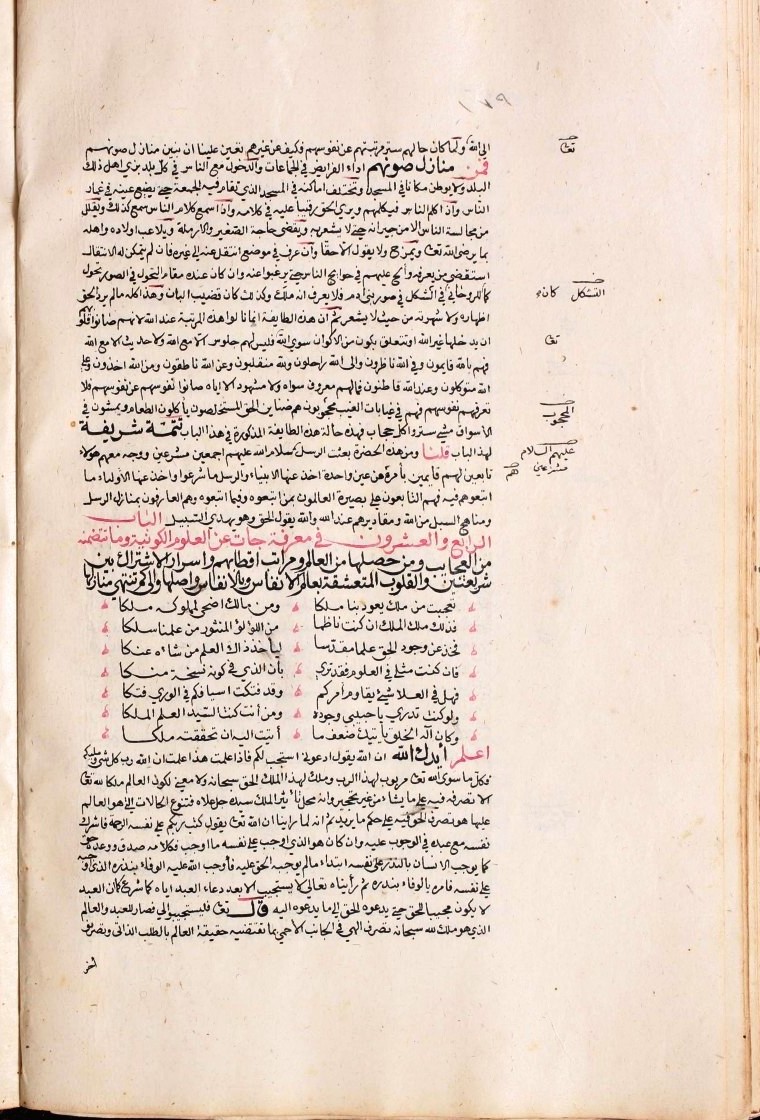 ١٧٩
الى الله ولما كان حالهم ستر مرتبتهم عن نفوسهم فكيف عن غيرهم تعين علينا ان نبين منازل صونهم
فمن منازل صونهم اداء الفرايض في الجماعات والدخول مع الناس في كل بلد بزي اهل ذلك
البلد ولا يوطن مكانا في المسجد وتختلف اماكنه في المسجد الذي تقام فيه الجمعة حتى يضيع عينه في غمار
الناس واذا كلم الناس فيكلمهم ويرى الحق رقيبا عليه في كلامه واذا سمع كلام الناس سمع كذلك ويقلل
من مجالسة الناس الا من جيرانه حتى لا يشعر به ويقضي حاجة الصغير والارملة ويلاعب اولاده واهله
بما يرضي الله تعالى ويمزح ولا يقول الا حقا وان عرف في موضع انتقل عنه الى غيره فان لم يتمكن له الانتقال
استقضى من يعرفه والح عليهم في حوايج الناس حتى يرغبوا عنه وان كان عنده مقام التحول في الصور تحول
كما للروحاني في الشكل في صور بني ادم فلا يعرف انه ملك وكذلك كان قضيب البان وهذا كله مالم يرد الحق
اظهاره ولا شهرته من حيث لا يشعر ثم ان هذه الطايفة انما نالوا هذه المرتبة عند الله لانهم صانوا قلوبهم
ان يدخلها غير الله او تتعلق بكون من الاكوان سوى الله فليس لهم جلوس الا مع الله ولا حديث الا مع الله
فهم بالله قايمون وفي الله ناظرون والى الله راحلون ومنقلبون وعن الله ناطقون ومن الله اخذون وعلى
الله متوكلون وعند الله قاطنون فما لهم معروف سواه ولا مشهود الا اياه صانوا نفوسهم عن نفوسهم فلا
تعرفهم نفوسهم فهم في غيابات الغيب محجوبون هم ضناين الحق المستخلصون يأكلون الطعام ويمشون في
الاسواق مشي ستر واكل حجاب فهذه حالة هذه الطايفة المذكورة في هذا الباب تتمة شريفة
لهذا الباب قلنا ومن هذه الحضرة بعثت الرسل سلام الله عليهم اجمعين مشرعين ووجه معهم هؤلاء
تابعين لهم قايمين بأمرهم من عين واحدة اخذ عنها الانبياء والرسل ما شرعوا واخذ عنها الاولياء ما
اتبعوهم فيه فهم التابعون على بصيرة العالمون بمن اتبعوه وفيما اتبعوه وهم العارفون بمنازل الرسل
ومناهج السبل من الله ومقاديرهم عند الله والله يقول الحق وهو يهدي السبيل الباب
الرابع والعشرون في معرفة جاءت عن العلوم الكونية وما تتضمنه
من العجايب ومن حصلها من العالم ومراتب اقطابهم واسرار الاشتراك بين
شريعتين والقلوب المتعشقة بعالم الانفاس وبالانفاس واصلها والى كم تنتهي منازلها
تعجبت من ملك يعود بنا ملكا ومن مالك اضحى لمملوكه ملكا
فذلك ملك الملك ان كنت ناظما من اللؤلؤ المنثور من علمنا سلكا
فخذ عن وجود الحق علما مقدسا ليأخذ ذاك العلم من شاءه عنكا
فان كنت مثلي في العلوم فقد ترى بان الذي في كونه نسخة منكا
فهل في العلا شيء يقاوم امركم وقد فتكت اسيافكم في الورى فتكا
ولو كنت تدري يا حبيبي وجوده ومن أنت كنت السيد العلم الملكا
وكان اله الخلق يأتيك ضعف ما أتيت اليه ان تحققته ملكا
اعلم أيدك الله ان الله يقول ادعوني استجب لكم فاذا علمت هذا علمت ان الله رب كل شيء ومليكه
فكل ما سوى الله تعالى مربوب لهذا الرب وملك لهذا الملك الحق سبحانه ولا معنى لكون العالم ملكا لله تعالى
الا تصرفه فيه على ما يشاء من غير تحجير وانه محل تأثير الملك سيده جل علاه فتنوع الحالات التي هو العالم
عليها هو تصرف الحق فيه على حكم ما يريد ثم انه لما رأينا ان الله تعالى يقول كتب ربكم على نفسه الرحمة فاشرك
نفسه مع عبده في الوجوب عليه وان كان هو الذي اوجب على نفسه ما اوجب فكلامه صدق ووعده حق
كما يوجب الانسان بالنذر على نفسه ابتداء مالم يوجبه الحق عليه فأوجب الله عليه الوفاء بنذره الذي اوجبه
على نفسه فامره بالوفاء بنذره ثم رأيناه تعالى لا يستجيب الا بعد دعاء العبد اياه كما شرع كما ان العبد
لا يكون مجيبا للحق حتى يدعوه الحق الى ما يدعوه اليه قال تعالى فليستجيبوا لي فصار للعبد والعالم
الذي هو ملك لله سبحانه تصرف الهي في الجانب الاحمى بما تقتضيه حقيقة العالم بالطلب الذاتي وتصرف
اخر
تعالى
التشكل كانه
تعالى
المحجوب
عليهم السلام
مشرعين